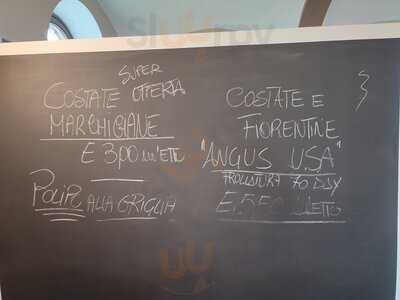 SUPER
OFFERTA
COSTATE
MARCHIGIANE
E 3,00 ALL'ETTO
POLIPO ALLA GRIGLIA
COSTATE E
FIORENTINE
"ANGUS U.S.A"
FROLLATURA 70 DAY
E. 5,50 ALL'ETTO